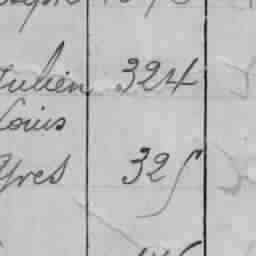 Julien 324
Louis
Yves 325